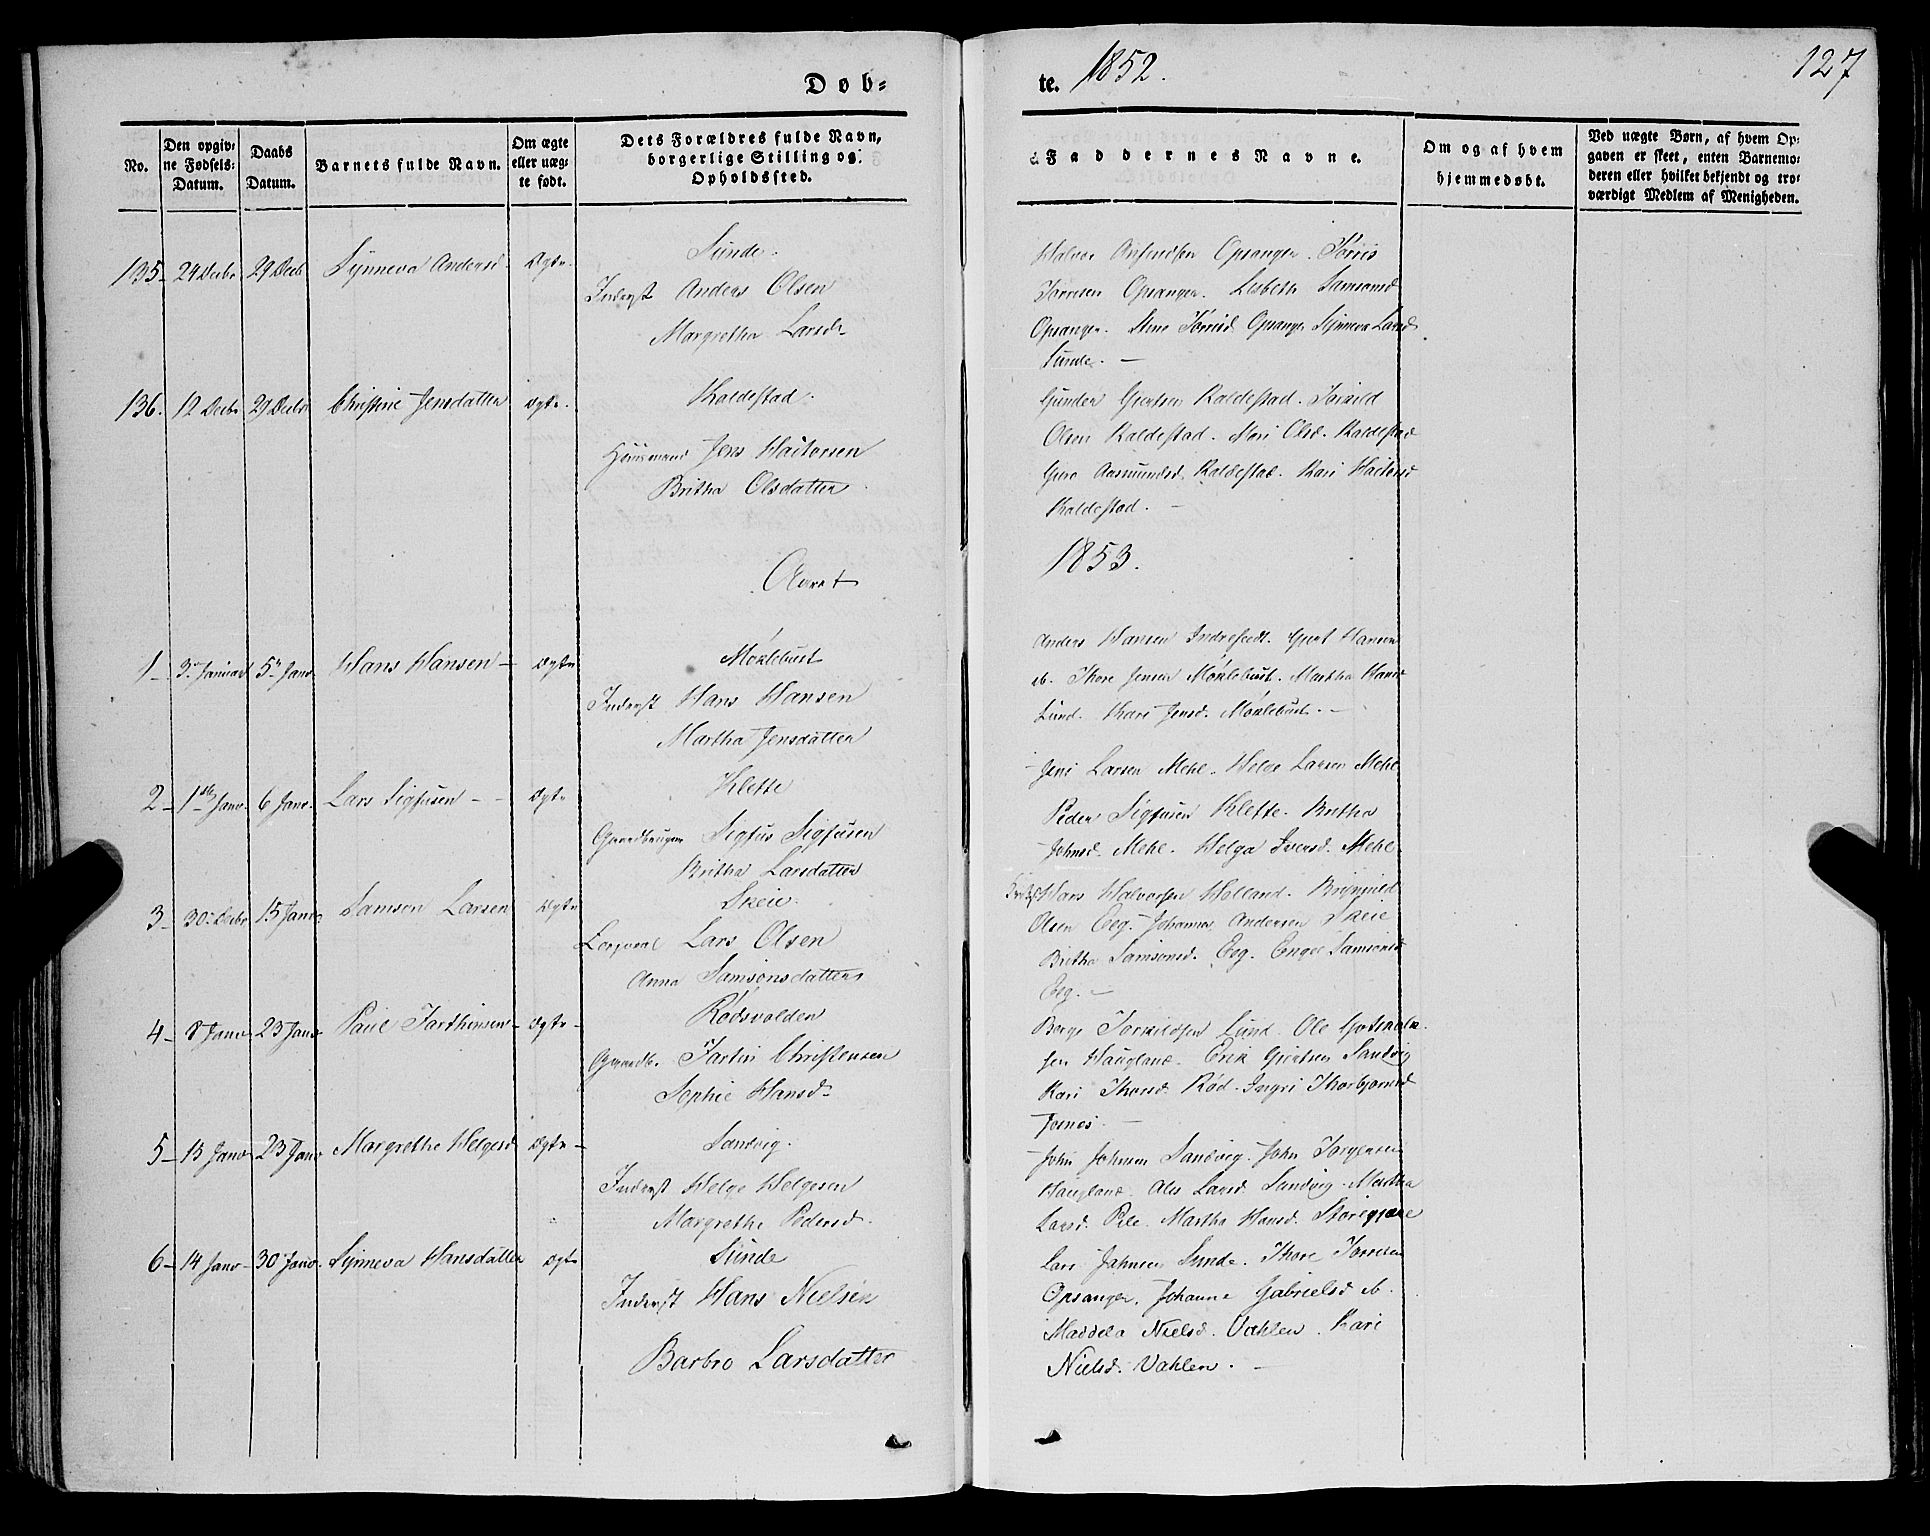 Døb=
te. 1852.
127
No.
Den opgiv=
ne Fødsels=
Datum.
Daabs
Datum.
Barnets fulde Navn.
Om ægte
eller uæg=
te født.
Dets Forældres fulde Navn,
borgerlige Stilling og
Opholdssted.
Faddernes Navne.
Om og af hvem
hjemmedøbt.
Ved uægte Børn, af hvem Op=
gaven er skeet, enten Barnemo=
deren eller hvilket bekjendt og tro=
værdigt Medlem af Menigheden.
135. 24 Decbr 29 Decb Synneva Andersd. Ægte.
Sunde.
Inderst Anders Olsen
Margretha Larsd.
Halvor Opsanger. Tørris
Tørresen Opsanger. Lisbeth Samsonsd
Opsanger. Tørrisd. Opsanger Synneva Larsd
Sunde. —
136. 12 Decbr 29 Decbr Christine Jensdatter Ægte.
Kaldestad.
Huusmand Jens Haktorsen
Britha Olsdatter
Gunder Kaldestad. Torkild
Olsen Kaldestad. Mari Olsd. Kaldestad
Guro Aasmundsd. Kaldestad. Kari Haktorsd
Kaldestad. —
Aaret
1853.
1 – 3. Januar 5. Janr Hans Hansen – Ægte
Møklebust
Inderst Hans Hansen
Martha Jensdatter
Anders Hansen Gjert Hansen
ib. Thore Jensen Møklebust. Martha Hansd
Lund. Kari Jensd. Møklebust. –
2 – 1ste Janr. 6 Janr. Lars Sigfusen – – Ægte
Klette
Gaardbruger Sigfus Sigfusen
Britha Larsdatter
Jens Larsen Mehl. Helge Larsen Mehl
Peder Sigfusen Klette. Britha
Johnsd. Mehl. Helga Iversd. Mehl
3 – 30. Decbr 15 Janr Samson Larsen Ægte
Skeie.
Lars Olsen
Anna Samsonsdatter
Hans Halvorsen Holland. Brynjild
Olsen Eeg. Johannes Andersen Skeie
Britha Samsonsd. Eeg. Engel Samsonsd
Eeg. –
4 – 8 Janr 23 Janr Paul Ægte –
Rødsvolden
Gaardb. Christensen
Sophie Hansd.
Børge Torkildsen Lund. Ole Gotskalk=
sen Haugland. Erik Gjertsen Sandvig
Kari Thorsd. Rød. Ingri Thorbjørnsd
5 – 13 Janr 23 Janr Margrethe Helgesd. Ægte –
Sandvig.
Inderst Helge Helgesen
Margrethe Pedersd.
John Johnsen Sandvig. John Torgersen
Haugland. Larsd. Sandvig. Martha
Larsd. Pile. Martha Hansd.
6 – 14 Janr – 30 Janr. Synneva Hansdatter Ægte
Sunde
Inderst Hans Nielsen
Barbro Larsdatter
Lars Johnsen Sunde. Thore Tørresen
Opsanger. Johanne Gabrielsd ib.
Maddela Nielsd. Vahlen. Kari
Nielsd. Vahlen. –